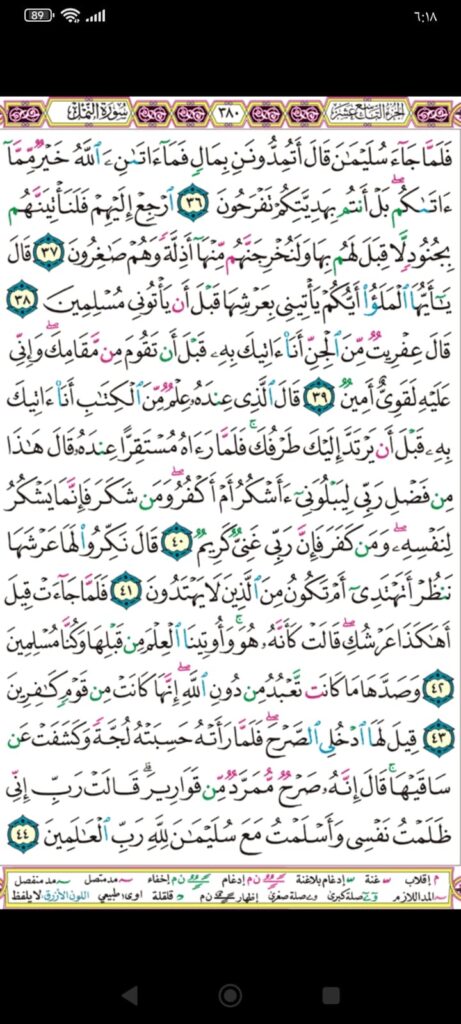 89
٦:١٨
الجزء التاسع عشر
٣٨٠
سورة النمل
فَلَمَّا جَآءَ سُلَيْمَٰنَ قَالَ أَتُمِدُّونَنِ بِمَالٍ فَمَآ ءَاتَىٰنِۦَ ٱللَّهُ خَيْرٌ مِّمَّآ
ءَاتَىٰكُم بَلْ أَنتُم بِهَدِيَّتِكُمْ تَفْرَحُونَ ٣٦ ٱرْجِعْ إِلَيْهِمْ فَلَنَأْتِيَنَّهُم
بِجُنُودٍ لَّا قِبَلَ لَهُم بِهَا وَلَنُخْرِجَنَّهُم مِّنْهَآ أَذِلَّةً وَهُمْ صَٰغِرُونَ ٣٧ قَالَ
يَٰٓأَيُّهَا ٱلْمَلَؤُا۟ أَيُّكُمْ يَأْتِينِى بِعَرْشِهَا قَبْلَ أَن يَأْتُونِى مُسْلِمِينَ ٣٨
قَالَ عِفْرِيتٌ مِّنَ ٱلْجِنِّ أَنَا۠ ءَاتِيكَ بِهِۦ قَبْلَ أَن تَقُومَ مِن مَّقَامِكَ ۖ وَإِنِّى
عَلَيْهِ لَقَوِىٌّ أَمِينٌ ٣٩ قَالَ ٱلَّذِى عِندَهُۥ عِلْمٌ مِّنَ ٱلْكِتَٰبِ أَنَا۠ ءَاتِيكَ
بِهِۦ قَبْلَ أَن يَرْتَدَّ إِلَيْكَ طَرْفُكَ ۚ فَلَمَّا رَءَاهُ مُسْتَقِرًّا عِندَهُۥ قَالَ هَٰذَا
مِن فَضْلِ رَبِّى لِيَبْلُوَنِىٓ ءَأَشْكُرُ أَمْ أَكْفُرُ ۖ وَمَن شَكَرَ فَإِنَّمَا يَشْكُرُ
لِنَفْسِهِۦ ۖ وَمَن كَفَرَ فَإِنَّ رَبِّى غَنِىٌّ كَرِيمٌ ٤٠ قَالَ نَكِّرُوا۟ لَهَا عَرْشَهَا
نَنظُرْ أَتَهْتَدِىٓ أَمْ تَكُونُ مِنَ ٱلَّذِينَ لَا يَهْتَدُونَ ٤١ فَلَمَّا جَآءَتْ قِيلَ
أَهَٰكَذَا عَرْشُكِ ۖ قَالَتْ كَأَنَّهُۥ هُوَ ۚ وَأُوتِينَا ٱلْعِلْمَ مِن قَبْلِهَا وَكُنَّا مُسْلِمِينَ
٤٢ وَصَدَّهَا مَا كَانَت تَّعْبُدُ مِن دُونِ ٱللَّهِ ۖ إِنَّهَا كَانَتْ مِن قَوْمٍ كَٰفِرِينَ
٤٣ قِيلَ لَهَا ٱدْخُلِى ٱلصَّرْحَ ۖ فَلَمَّا رَأَتْهُ حَسِبَتْهُ لُجَّةً وَكَشَفَتْ عَن
سَاقَيْهَا ۚ قَالَ إِنَّهُۥ صَرْحٌ مُّمَرَّدٌ مِّن قَوَارِيرَ ۗ قَالَتْ رَبِّ إِنِّى
ظَلَمْتُ نَفْسِى وَأَسْلَمْتُ مَعَ سُلَيْمَٰنَ لِلَّهِ رَبِّ ٱلْعَٰلَمِينَ ٤٤
م إقلاب غنة إدغام بلاغنة ن م إدغام ن م إخفاء مد متصل مد منفصل
المد اللازم صلة كبرى صلة صغرى إظهار ن م قلقلة اوى طبيعي اللون الأزرق لا يلفظ